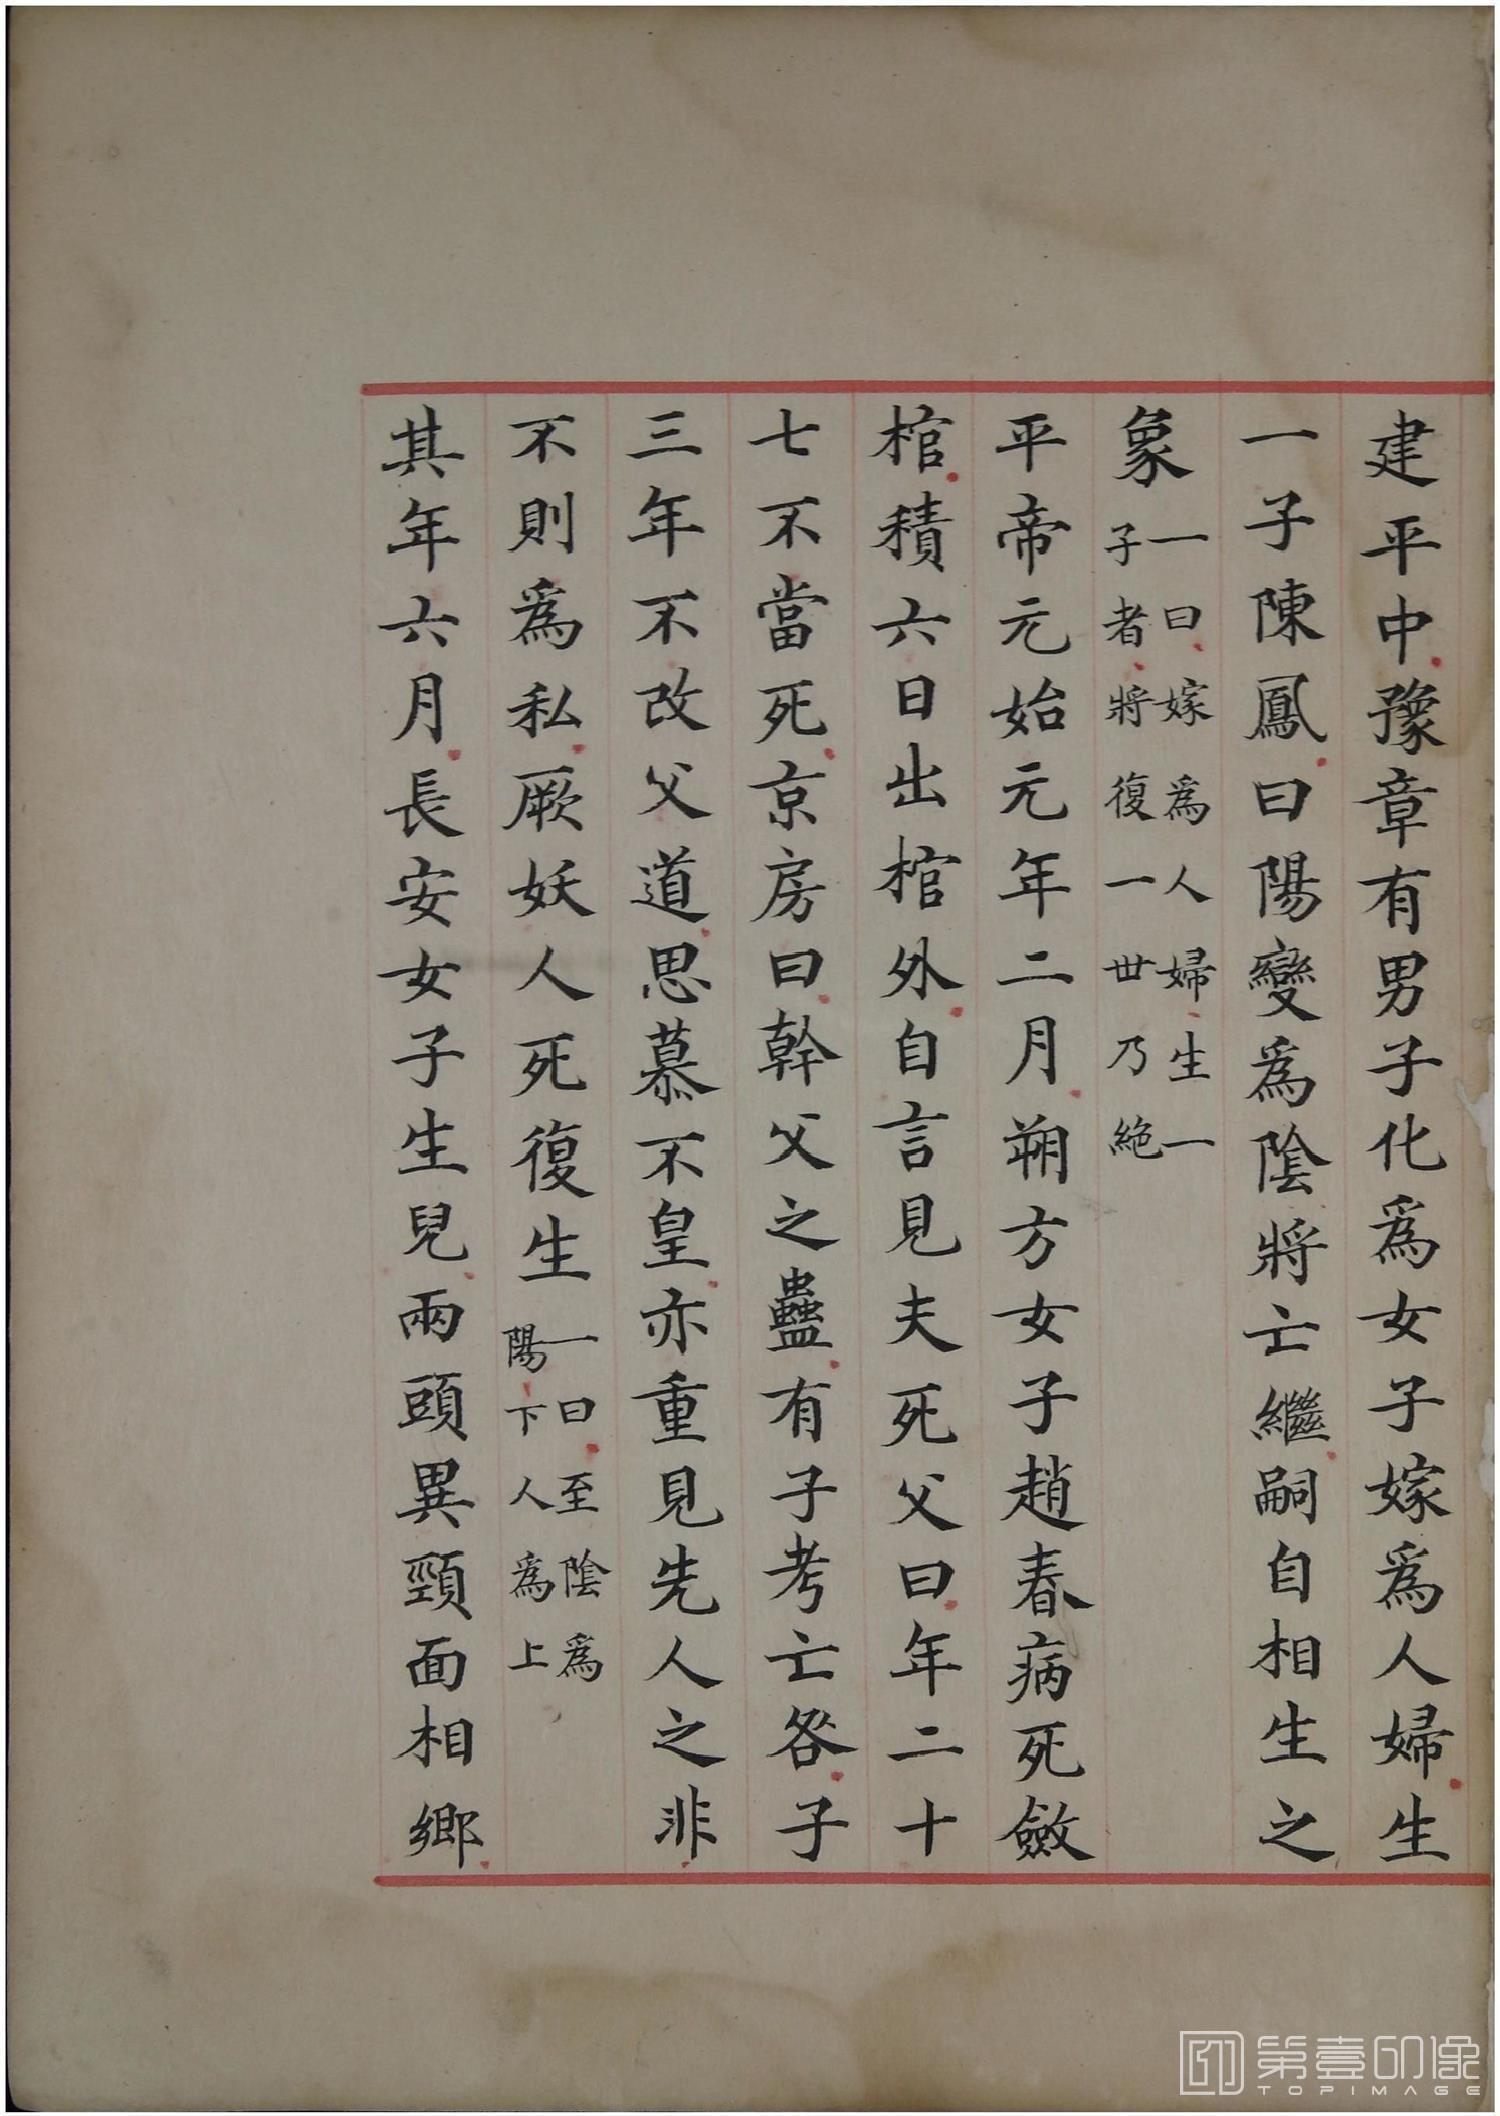 建平中豫章有男子化為女子嫁為人婦生
一子陳鳳曰陽變為陰將亡繼嗣自相生之
象一曰嫁為人婦生一
子者將復一世乃絕
平帝元始元年二月朔方女子趙春病死斂
棺積六日出棺外自言見夫死父曰年二十
七不當死京房曰幹父之蠱有子考亡咎子
三年不改父道思慕不皇亦重見先人之非
不則為私厥妖人死復生一曰至陰為
陽下人為上
其年六月長安女子生兒兩頭異頸面相鄉
第壹印像
TOPIMAGE